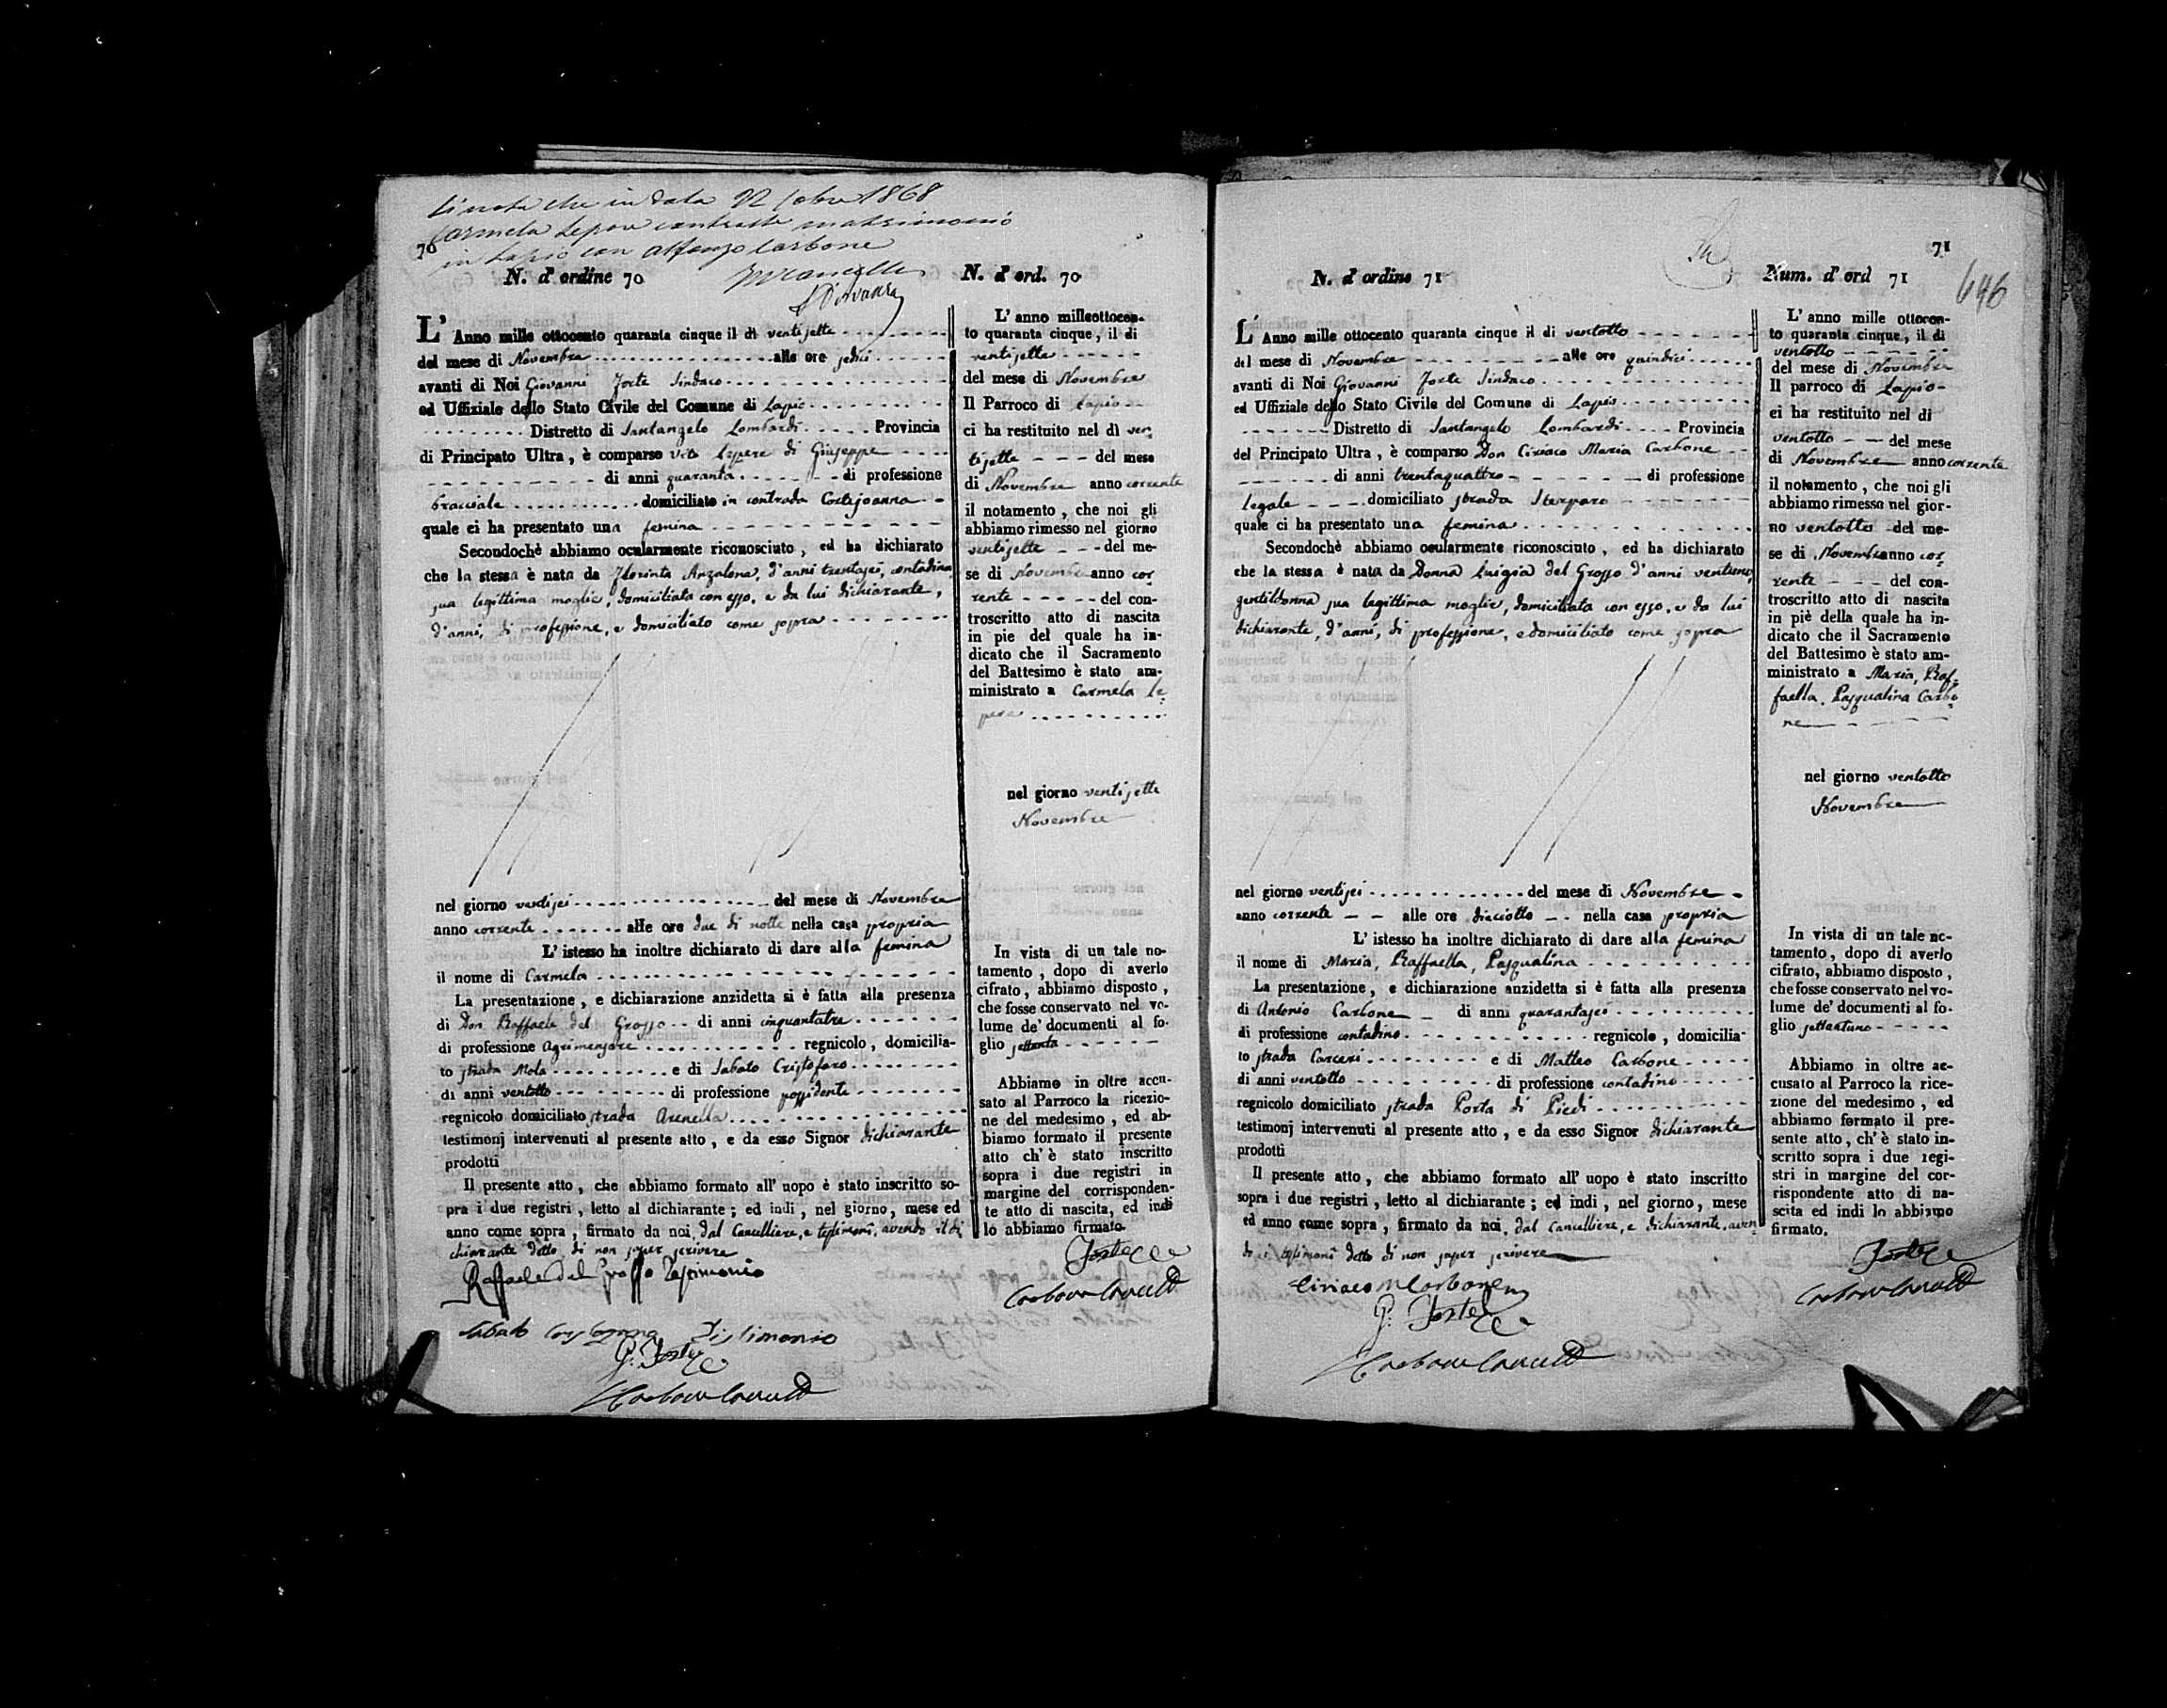 Si nota che in data 22 1868
Carmela Lepore contratto matrimonio
in Lapio con Alfonzo Carbone
70
N. d' ordine 70
L' Anno mille ottocento quaranta cinque il di ventisette
del mese di Novembre alle ore sedici
avanti di Noi Giovanni Forte Sindaco
ed Uffiziale dello Stato Civile del Comune di Lapio
Distretto di Santangelo Lombardi Provincia
di Principato Ultra, è comparso Vito Lepere di Giuseppe
di anni quaranta di professione
bracciale domiciliato in contrada Cortejoanna
quale ci ha presentato una femina
Secondochè abbiamo ocularmente riconosciuto, ed ha dichiarato
che la stessa è nata da Florinta Anzalona, d'anni trentasei, contadina,
sua legittima moglie, domiciliata con esso, e da lui dichiarante,
d'anni, di professione, e domiciliato come sopra
nel giorno ventisei del mese di Novembre
anno corrente alle ore due di notte nella casa propria
L' istesso ha inoltre dichiarato di dare alla femina
il nome di Carmela
La presentazione, e dichiarazione anzidetta si è fatta alla presenza
di Don Raffaele del Grosso di anni cinquantatre
di professione Agrimensore regnicolo, domicilia-
to strada Mola e di Sabato Cristofaro
di anni ventotto di professione possidente
regnicolo domiciliato strada Arenella
testimonj intervenuti al presente atto, e da esso Signor dichiarante
prodotti
Il presente atto, che abbiamo formato all' uopo è stato inscritto so-
pra i due registri, letto al dichiarante; ed indi, nel giorno, mese ed
anno come sopra, firmato da noi, dal Cancelliere, e testimoni, avendo il di
chiarante detto di non saper scrivere
Raffaele del Grosso Testimonio
Sabato Testimonio
G. Forte
Carbone
N. d' ord. 70
L' anno milleottocen-
to quaranta cinque, il di
ventisette
del mese di Novembre
Il Parroco di Lapio
ci ha restituito nel dì ven
tisette del mese
di Novembre anno corrente
il notamento, che noi gli
abbiamo rimesso nel giorno
ventisette del me-
se di Novembre anno cor
rente del con-
troscritto atto di nascita
in pie del quale ha in-
dicato che il Sacramento
del Battesimo è stato am-
ministrato a Carmela Le
pere
nel giorno ventisette
Novembre
In vista di un tale no-
tamento, dopo di averlo
cifrato, abbiamo disposto,
che fosse conservato nel vo-
lume de' documenti al fo-
glio settanta
Abbiamo in oltre accu-
sato al Parroco la ricezio-
ne del medesimo, ed ab-
biamo formato il presente
atto ch' è stato inscritto
sopra i due registri in
margine del corrisponden-
te atto di nascita, ed indi
lo abbiamo firmato
Forte
Carbone
71
646
N. d' ordine 71
L' Anno mille ottocento quaranta cinque il di ventotto
del mese di Novembre alle ore quindici
avanti di Noi Giovanni Forte Sindaco
ed Uffiziale dello Stato Civile del Comune di Lapio
Distretto di Santangelo Lombardi Provincia
del Principato Ultra, è comparso Don Ciriaco Maria Carbone
di anni trentaquattro di professione
legale domiciliato strada Sterparo
quale ci ha presentato una femina
Secondochè abbiamo ocularmente riconosciuto, ed ha dichiarato
che la stessa è nata da Donna Luigia del Grosso d'anni ventuno,
gentildonna sua legittima moglie, domiciliata con esso, e da lui
dichiarante, d'anni, di professione, e domiciliato come sopra
nel giorno ventisei del mese di Novembre
anno corrente alle ore diciotto nella casa propria
L' istesso ha inoltre dichiarato di dare alla femina
il nome di Maria, Raffaella, Pasqualina
La presentazione, e dichiarazione anzidetta si è fatta alla presenza
di Antonio Carbone di anni quarantasei
di professione contadino regnicolo, domicilia-
to strada Carceri e di Matteo Carbone
di anni ventotto di professione contadino
regnicolo domiciliato strada Porta di Piedi
testimonj intervenuti al presente atto, e da esso Signor dichiarante
prodotti
Il presente atto, che abbiamo formato all' uopo è stato inscritto
sopra i due registri, letto al dichiarante; ed indi, nel giorno, mese
ed anno come sopra, firmato da noi, dal Cancelliere, e dichiarante, aven
do i testimoni detto di non saper scrivere
Ciriaco M Carbone
G. Forte
Carbone
Num. d' ord 71
L' anno mille ottocen-
to quaranta cinque, il di
ventotto
del mese di Novembre
Il parroco di Lapio
ei ha restituito nel di
ventotto del mese
di Novembre anno corrente
il notamento, che noi gli
abbiamo rimesso nel gior-
no ventotto del me-
se di Novembre anno cor
rente del con-
troscritto atto di nascita
in piè della quale ha in-
dicato che il Sacramento
del Battesimo è stato am-
ministrato a Maria, Raf
faella, Pasqualina Carbo
ne
nel giorno ventotto
Novembre
In vista di un tale no-
tamento, dopo di averlo
cifrato, abbiamo disposto,
che fosse conservato nel vo-
lume de' documenti al fo-
glio settantuno
Abbiamo in oltre ac-
cusato al Parroco la rice-
zione del medesimo, ed
abbiamo formato il pre-
sente atto, ch' è stato in-
scritto sopra i due regi-
stri in margine del cor-
rispondente atto di na-
scita ed indi lo abbiamo
firmato.
Forte
Carbone